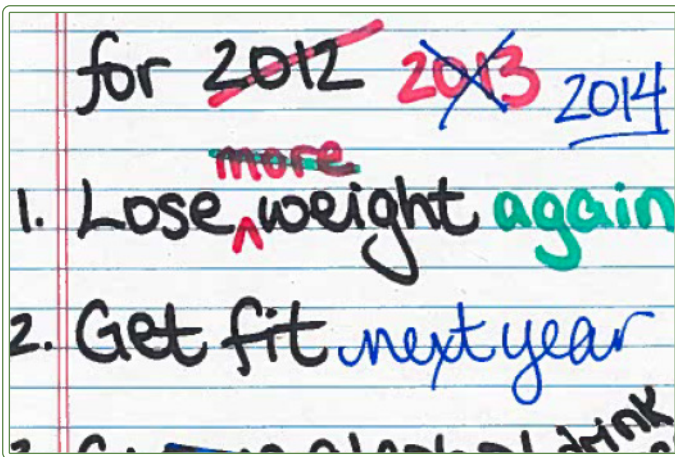 for 2012 2013 2014
more
1. Lose weight again
2. Get fit next year
drink